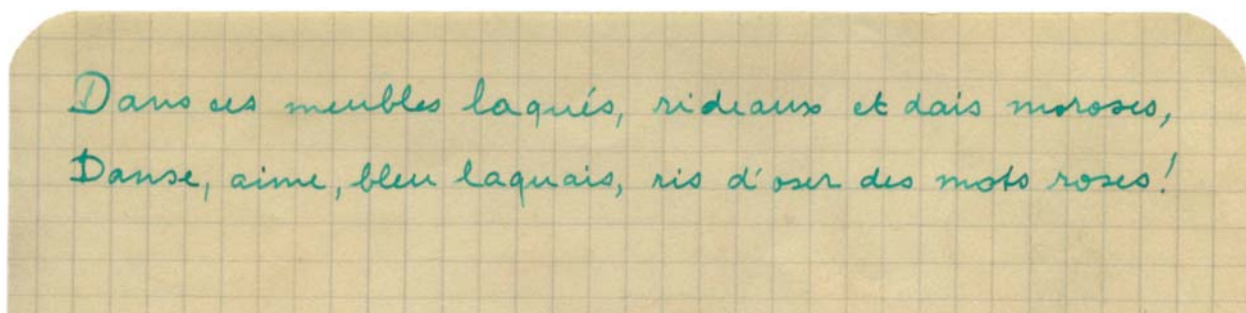 Dans ces meubles laqués, rideaux et dais moroses,
Danse, aime, bleu laquais, ris d'oser des mots roses!